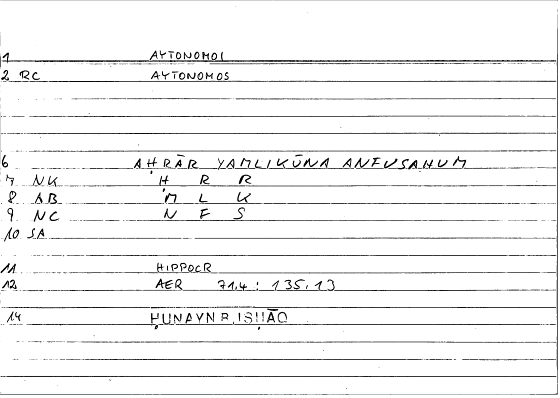 1 AYTONOMOI
2 RC AYTONOMOS
6 AḤRĀR YAMLIKŪNA ANFUSAHUM
7 NK Ḥ R R
8 AB M L K
9 NC N F S
10 SA
11 HIPPOCR
12 AER 71,4 : 135,13
14 ḤUNAYN B. ISḤĀQ